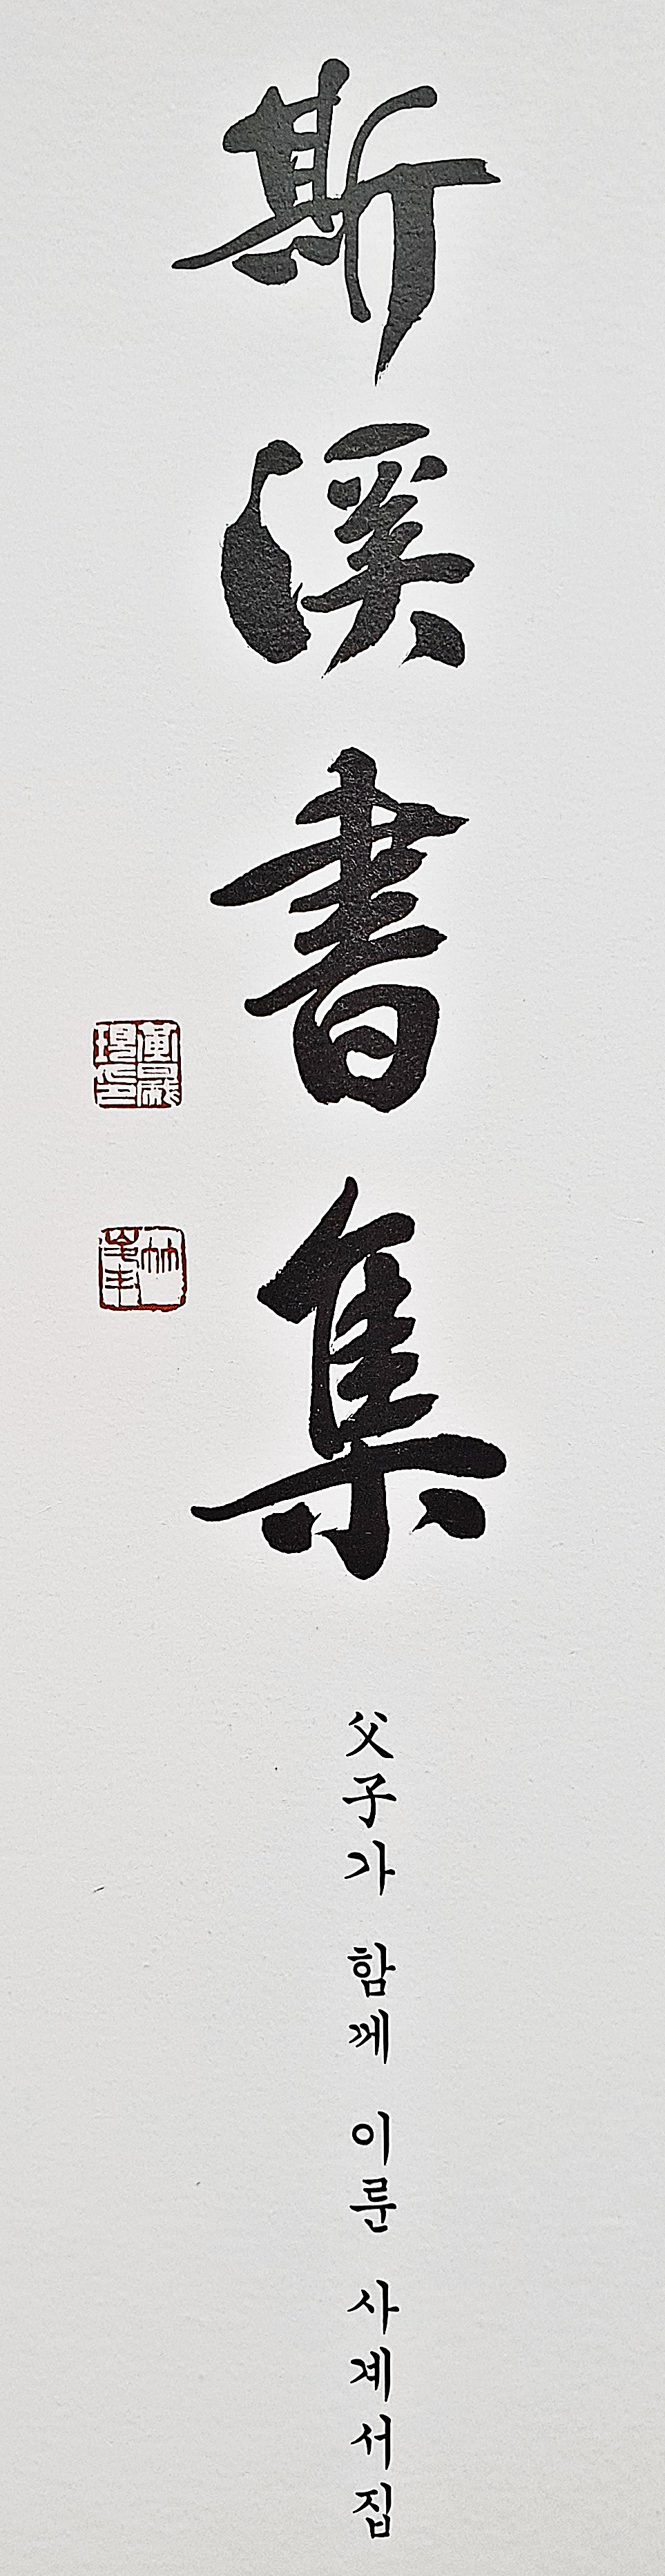 斯溪書集
父子가 함께 이룬 사계서집